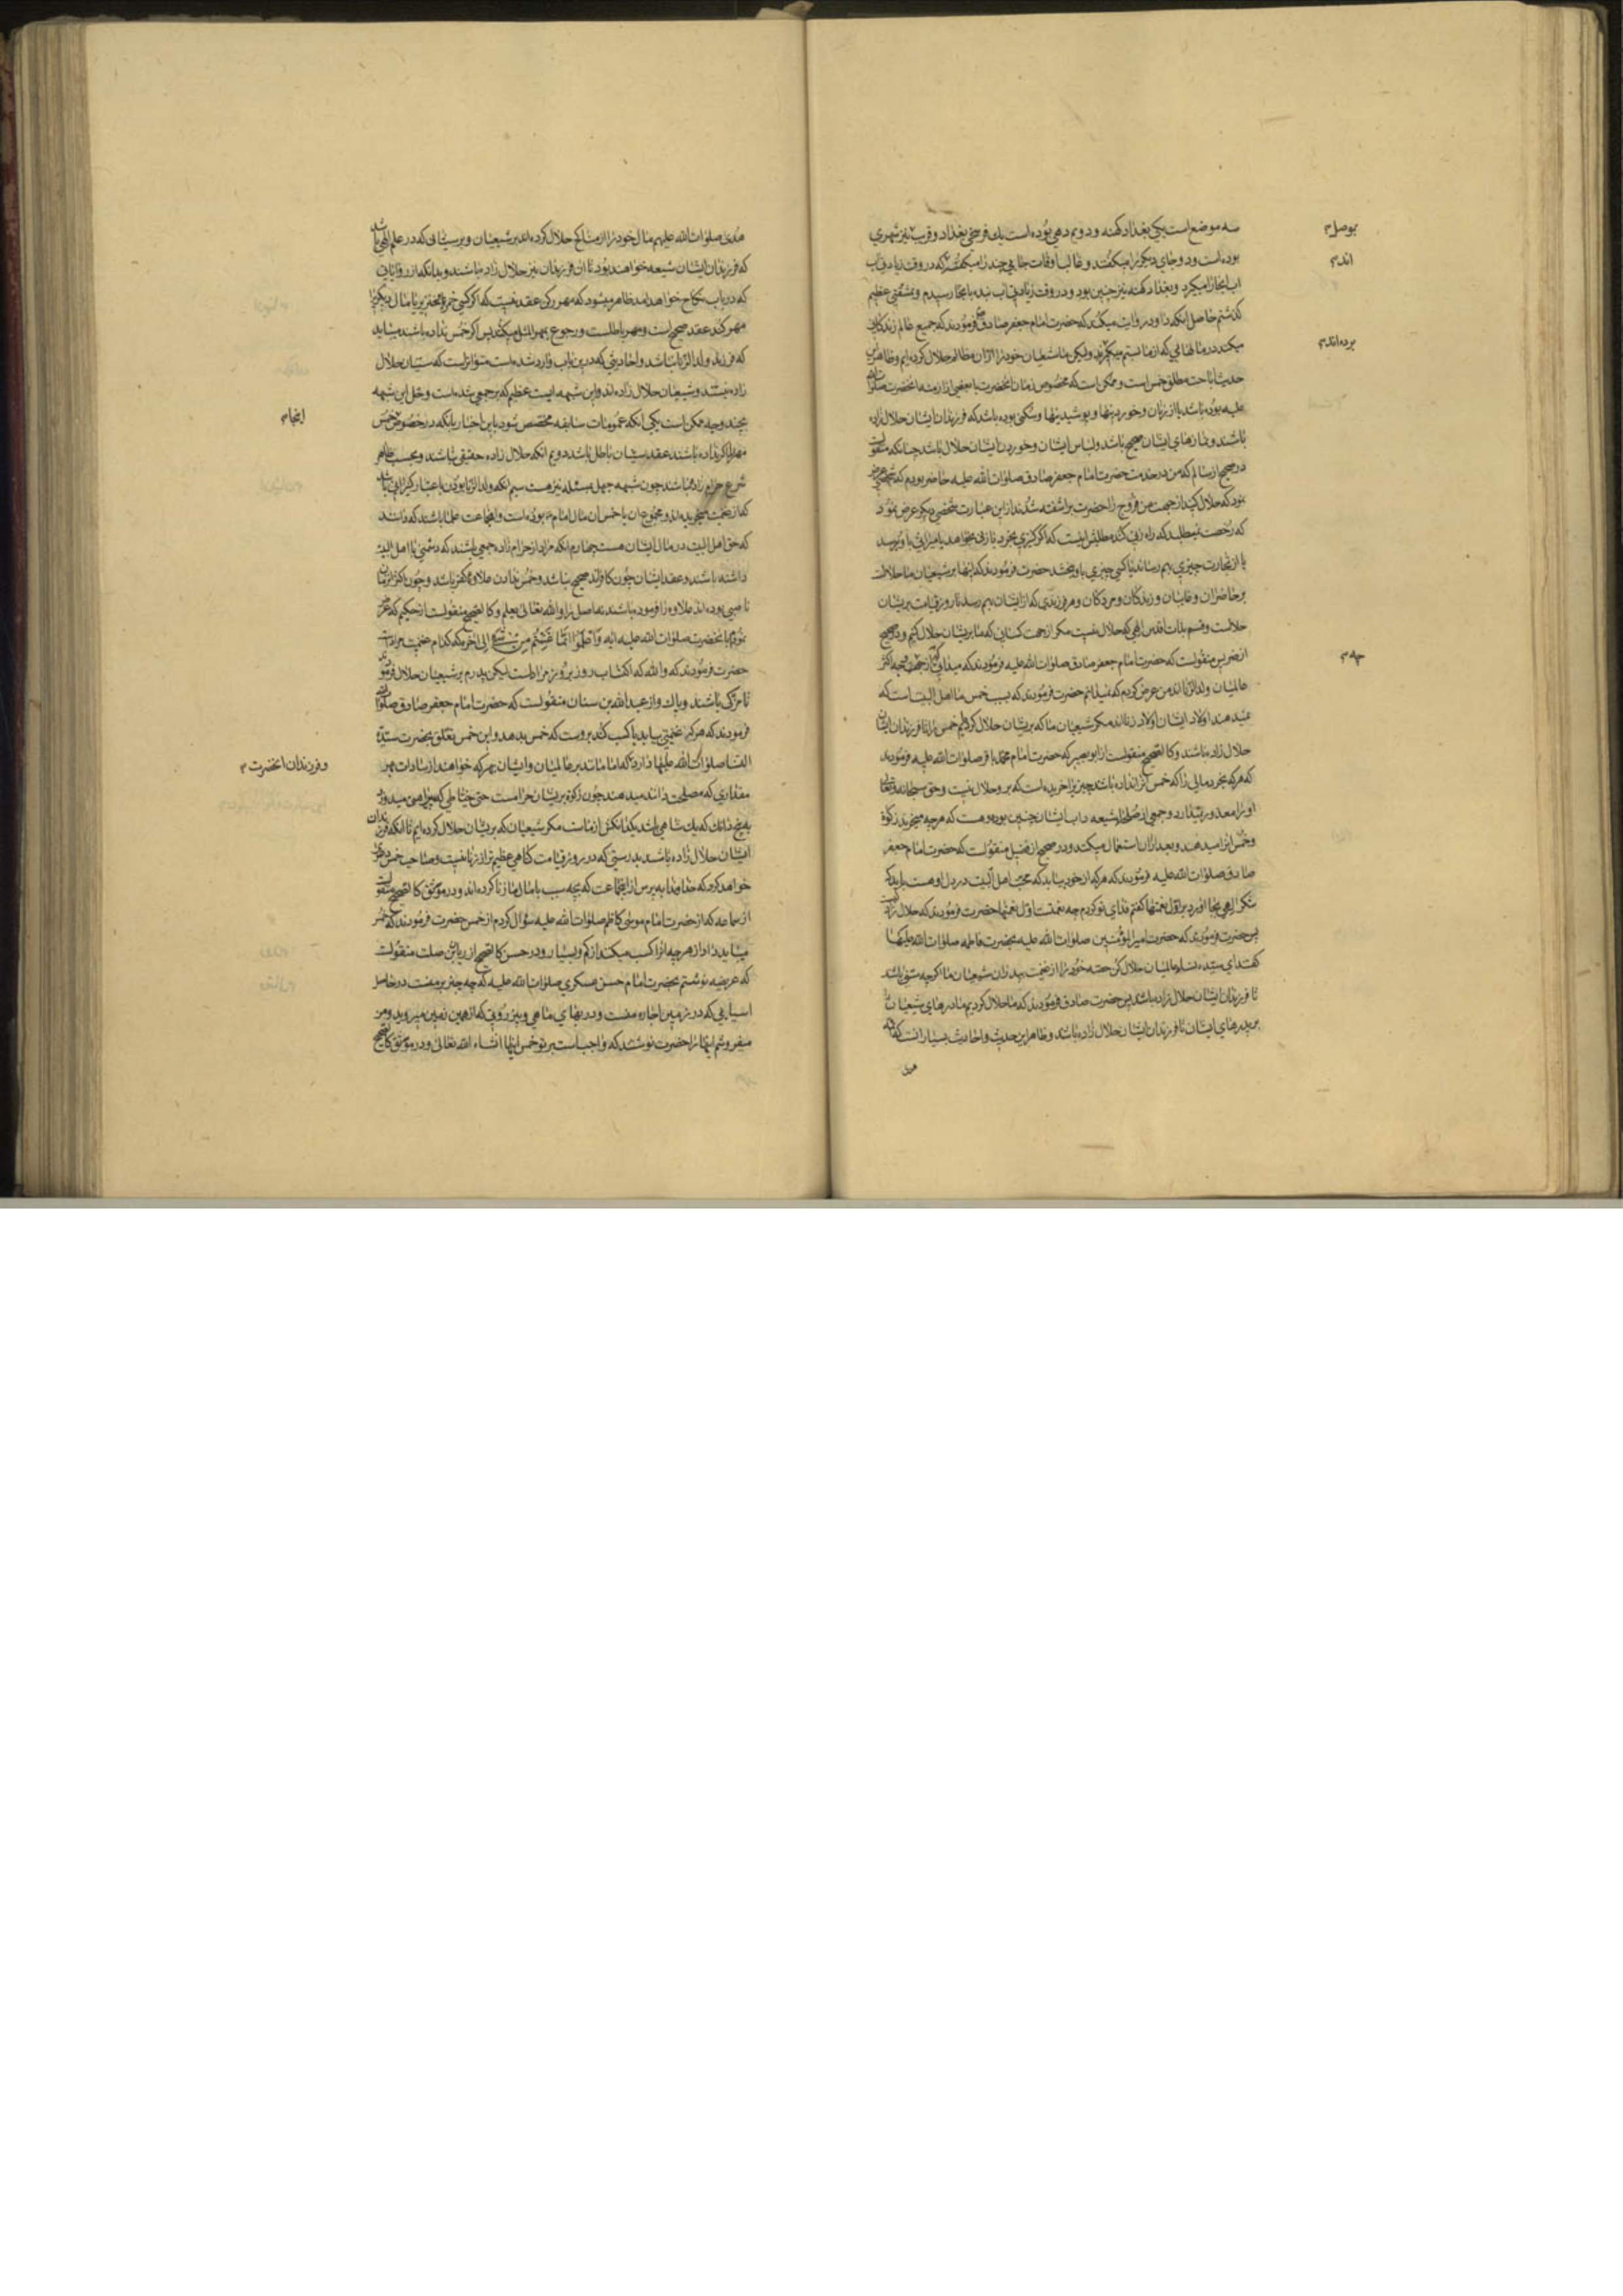 سه موضع است یکی بغداد کهنه و دویم دهی بوده است یک فرسخی بغداد و قریب نیز شهری
بوده است و دو جای دیکر را میکفتند و غالب اوقات جائی چند را میکفتند که در وقت زیادتی آب
آب آنجا را میکیرد و بغداد کهنه نیز چنین بود و در وقت زیادتی آب بنده بانجا رسیدم و بمشقتی عظیم
کذشتم حاصل آنکه داود روایت میکند که حضرت امام جعفر صادق ع فرمودند که جمیع عالم زندکانی
میکنند در مالهائی که از ما بستم میکیرند ولیکن ما شیعیان خود را از آن مظالم حلال کرده ایم و ظاهر این
حدیث اباحت مطلق خمس است و ممکن است که مخصوص زمان آنحضرت یا بعضی از ازمنه آنحضرت صلوات الله
علیه بوده باشد یا از زنان و خوردنیها و پوشیدنیها و سکنی بوده باشد که فرزندان ایشان حلال زاده
باشند و نمازهای ایشان صحیح باشد و لباس ایشان و خوردن ایشان حلال باشد چنانکه منقولست
در صحیح از سالم که من در خدمت حضرت امام جعفر صادق صلوات الله علیه حاضر بودم که شخصی عرض
نمود که حلال کنید از جهت من فروج را حضرت برآشفته شدند از این عبارت شخصی دیکر عرض نمود
که رخصت نمیطلبد که راه زنی کند مطلبش اینست که اکر کنیزی بخرد یا زنی بخواهد یا میراثی باو برسد
یا از تجارت چیزی بهم رساند یا کسی چیزی باو بخشد حضرت فرمودند که اینها بر شیعیان ما حلالست
بر حاضران و غایبان و زندکان و مردکان و هر فرزندی که از ایشان بهم رسد تا روز قیامت بر ایشان
حلالست و قسم بذات اقدس الهی که حلال نیست مکر از جهت کسانی که ما بر ایشان حلال کنیم و در صحیح
از ضریس منقولست که حضرت امام جعفر صادق صلوات الله علیه فرمودند که میدانی که از جهت چه اکثر
عالمیان ولد الزنا اند من عرض کردم که نمیدانم حضرت فرمودند که بسبب خمس ما اهل البیت است که
نمیدهند اولاد ایشان اولاد زنااند مکر شیعیان ما که بر ایشان حلال کردیم خمس را تا فرزندان ایشان
حلال زاده باشند و کالصحیح منقولست از ابو بصیر که حضرت امام محمد باقر صلوات الله علیه فرمودند
که هر که بخرد مالی را که خمس آنرا نداده باشد چیزیرا خریده است که بر او حلال نیست و حق سبحانه و تعالی
او را معذور نمیدارد و جمعی از صلحای شیعه داب ایشان چنین بوده و هست که هر چه میخرند زکوة
و خمس آنرا میدهند و بعد از آن استعمال میکنند و در صحیح از فضیل منقولست که حضرت امام جعفر
صادق صلوات الله علیه فرمودند که هر که از خود بیابد که محبت اهل البیت در دل او هست باید که
شکر الهی بجا آورد بر اول نعمتها کفتم فدای تو کردم چه نعمتست اول نعمتها حضرت فرمودند که حلال زادکیست
پس حضرت فرمودند که حضرت امیر المؤمنین صلوات الله علیه بحضرت فاطمه صلوات الله علیها
کفت ای سیده نساء عالمیان حلال کن حصه خود را از غنیمت پدران شیعیان ما
تا فرزندان ایشان حلال زاده باشند پس حضرت صادق فرمودند که ما حلال کردیم مادرهای شیعیان را
بر پدرهای ایشان تا فرزندان ایشان حلال زاده باشند و ظاهر این حدیث و احادیث بسیار آنست که ائمه
هدی
بوصل
اند
برده اند
چه
هدی صلوات الله علیهم مال خود را از مناکح حلال کرده اند بر شیعیان و بر سنیانی که در علم الهی باشد
که فرزندان ایشان شیعه خواهند بود تا آن فرزندان نیز حلال زاده باشند و بدانکه از روایاتی
که در باب نکاح خواهد آمد ظاهر میشود که مهر رکن عقد نیست که اکر کسی خمر و خنزیر یا مال دیکریرا
مهر کند عقد صحیح است و مهر باطلست و رجوع بمهر المثل میکند پس اکر خمس نداده باشند میباید
که فرزند ولد الزنا نباشد و احادیثی که در این باب وارد شده است متواتر است که سنیان حلال
زاده نیستند و شیعیان حلال زاده اند و این شبهه ایست عظیم که بر جمعی شده است و حل این شبهه
بچند وجه ممکن است یکی آنکه عمومات سابقه مختص شود باین اخبار یا آنکه در خصوص خمس
مهر را اکر نداده باشند عقد سنیان باطل باشد دویم آنکه حلال زاده حقیقی نباشند و بحسب ظاهر
شرع حرام زاده نباشند چون شبهه جهل مسئله نیز هست سیم آنکه ولد الزنا بودن باعتبار کنیزانی باشد
که از غنیمت میخریده اند و مجموع آن یا خمس آن مال امام بوده است و از جماعت علما باشند که دانند
که حق اهل البیت در مال ایشان هست چهارم آنکه مراد از حرام زاده جمعی باشند که دشمنی با اهل البیت
داشته باشند و عقد ایشان چون کافراند صحیح نباشد و خمس ندادن علاوه کفر باشد و چون اکثر اوقات
ناصبی بوده اند علاوه را فرموده باشند نه اصل را والله تعالی یعلم و کالصحیح منقولست از حکیم که عرض
نمودم بآنحضرت صلوات الله علیه آیه وَاعْلَمُوا أَنَّمَا غَنِمْتُم مِّن شَيْءٍ الی آخره که کدام غنیمت مراد است
حضرت فرمودند که والله که اکتساب روز بروز مراد است لیکن پدرم بر شیعیان حلال فرمودند
تا مزکی باشند و پاک و از عبد الله بن سنان منقولست که حضرت امام جعفر صادق صلوات الله علیه
فرمودند که هر که غنیمتی بیابد یا کسب کند بر اوست که خمس بدهد و این خمس تعلق بحضرت سیدة
النسا صلوات الله علیها دارد که امامانند بر عالمیان و ایشان بهر که خواهند از سادات بهر
مقداری که مصلحت دانند میدهند چون زکوة بر ایشان حرامست حتی خیاطی که پیراهن میدوزد
به پنج دانک که یک شاهی باشد یکدانکش از ماست مکر شیعیان که بر ایشان حلال کرده ایم تا آنکه فرزندان
ایشان حلال زاده باشند بدرستی که در روز قیامت کناهی عظیم تر از زنا نیست و صاحب خمس عرض
خواهد کرد که خداوندا بپرس از اینجماعت که بچه سبب با مال ما زنا کرده اند و در موثق کالصحیح منقولست
از سماعه که از حضرت امام موسی کاظم صلوات الله علیه سؤال کردم از خمس حضرت فرمودند که خمس
میباید داد از هر چه آنرا کسب میکنند از کم و بسیار و در حسن کالصحیح از ریان بن صلت منقولست
که عریضه نوشتم بحضرت امام حسن عسکری صلوات الله علیه که چه چیز بر منست در حاصل
آسیابی که در زمین اجاره منست و در بهای ماهی و نیزروبی که از همین زمین میروید و من
میفروشم اینها را حضرت نوشتند که واجب است بر تو خمس اینها انشاء الله تعالی و در موثق کالصحیح
اینجا
و فرزندان آنحضرت